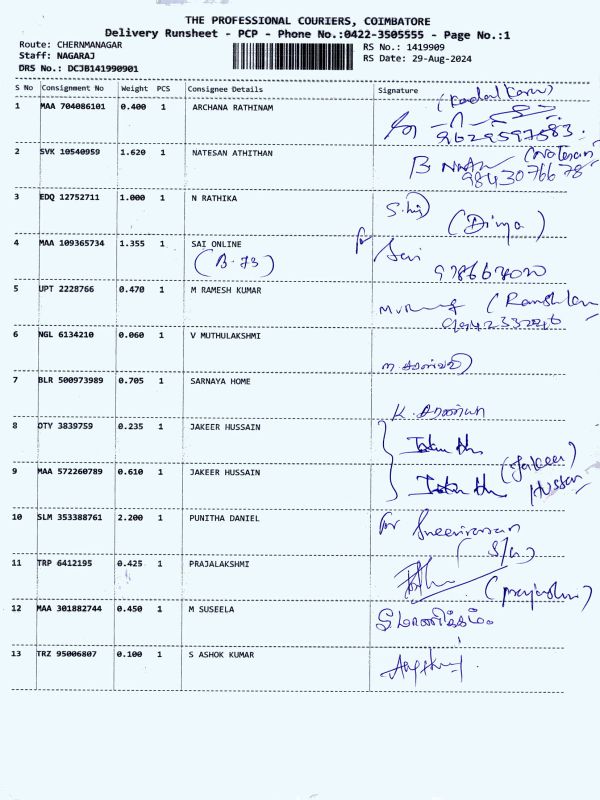 THE PROFESSIONAL COURIERS, COIMBATORE
Delivery Runsheet - PCP - Phone No.:0422-3505555 - Page No.:1
Route: CHERNMANAGAR RS No.: 1419909
Staff: NAGARAJ RS Date: 29-Aug-2024
DRS No.: DCJB141990901
S No Consignment No Weight PCS Consignee Details Signature
1 MAA 704086101 0.400 1 ARCHANA RATHINAM
9629597583.
2 SVK 10540959 1.620 1 NATESAN ATHITHAN B (Natesan)
9843076678
3 EDQ 12752711 1.000 1 N RATHIKA
(Divya)
4 MAA 109365734 1.355 1 SAI ONLINE for Sai
(B-73)
5 UPT 2228766 0.470 1 M RAMESH KUMAR
6 NGL 6134210 0.060 1 V MUTHULAKSHMI
7 BLR 500973989 0.705 1 SARNAYA HOME
K. சரண்யா
8 OTY 3839759 0.235 1 JAKEER HUSSAIN
9 MAA 572260789 0.610 1 JAKEER HUSSAIN (Jakeer
Hussain)
10 SLM 353388761 2.200 1 PUNITHA DANIEL for Sreenivasan
(S/W)
11 TRP 6412195 0.425 1 PRAJALAKSHMI
12 MAA 301882744 0.450 1 M SUSEELA
13 TRZ 95006807 0.100 1 S ASHOK KUMAR